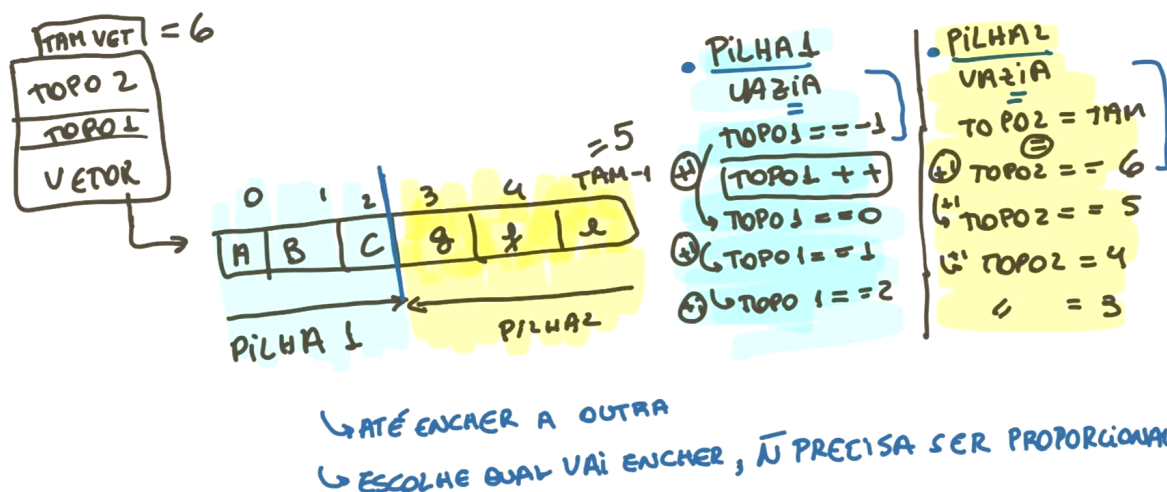 TAM VET = 6
TOPO 2
TOPO1
VETOR
0 1 2 3 4 TAM-1 = 5
A B C g f e
PILHA 1
PILHA2
• PILHA1
VAZIA
TOPO1 == -1
TOPO1 ++
TOPO1 == 0
TOPO1 == 1
TOPO 1 == 2
• PILHA2
VAZIA
TOPO2 = TAM
TOPO2 == 6
TOPO2 == 5
TOPO2 = 4
" = 3
↳ ATÉ ENCHER A OUTRA
↳ ESCOLHE QUAL VAI ENCHER, Ñ PRECISA SER PROPORCIONAL